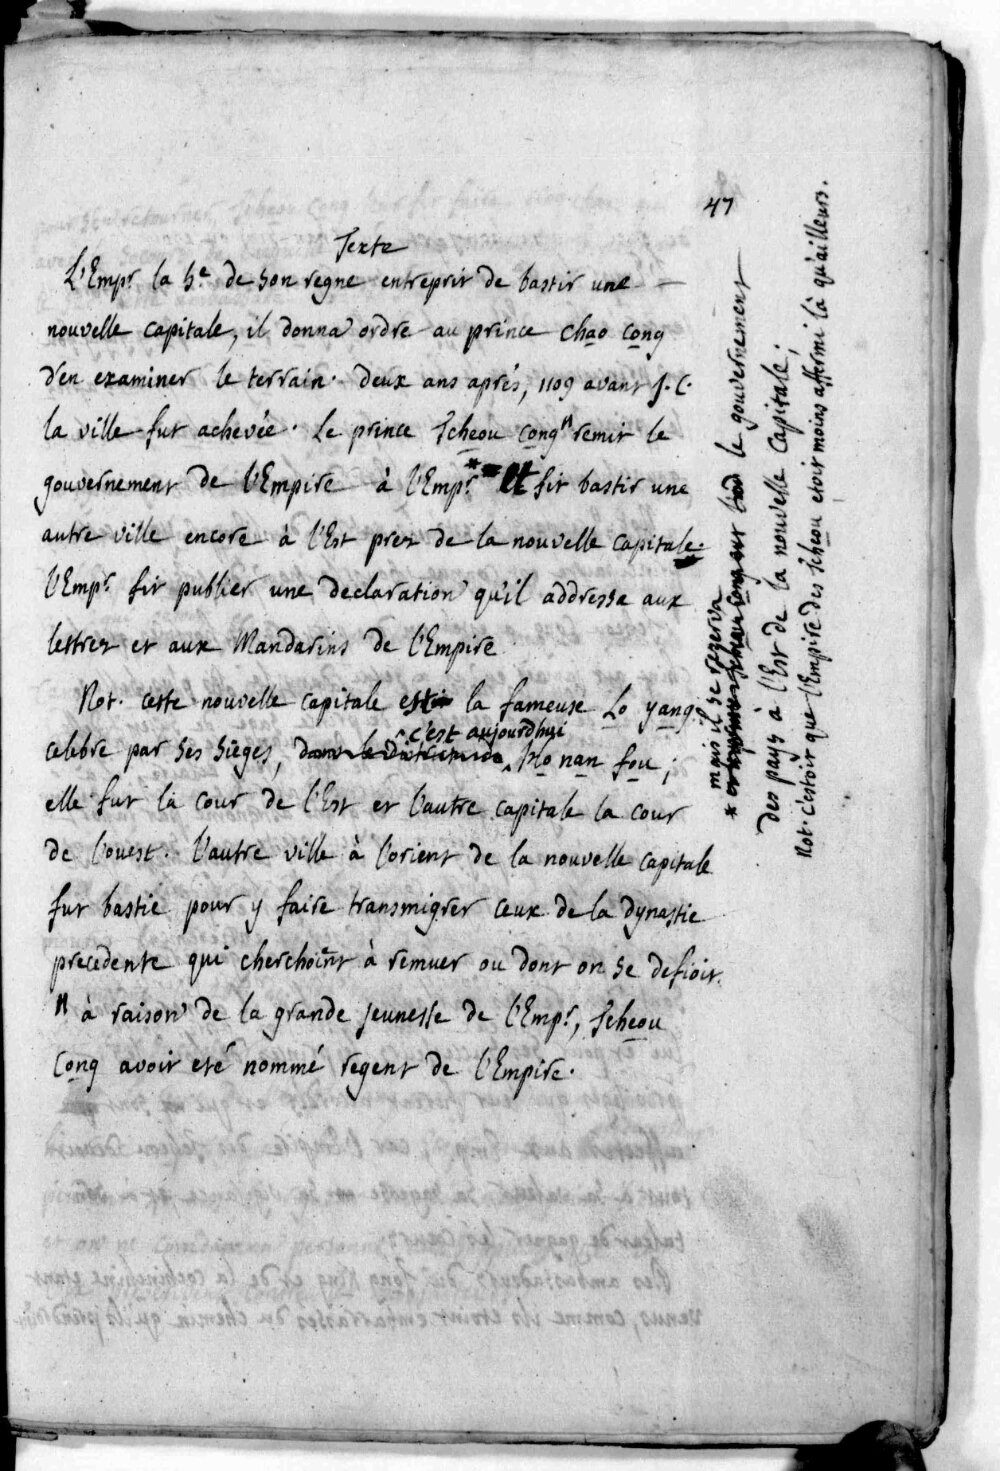 47
Texte
L'Empr. la 5.e de son regne entreprit de bastir une
nouvelle capitale, il donna ordre au prince chao cong
d'en examiner le terrain. deux ans aprés, 1109 avant J.C.
la ville fut achevée. Le prince Tcheou cong" remit le
gouvernement de l'Empire à l'Empr.* et fit bastir une
autre ville encore à l'Est prez de la nouvelle capitale.
l'Empr. fit publier une declaration qu'il addressa aux
lettrez et aux Mandarins de l'Empire
Not. cette nouvelle capitale est la fameuse Lo yang
celebre par ses sieges, c'est aujourdhui Ho nan fou;
elle fut la cour de l'Est et l'autre capitale la cour
de l'ouest. l'autre ville à l'orient de la nouvelle capitale
fut bastie pour y faire transmigrer ceux de la dynastie
precedente qui cherchoient à remuer ou dont on se defioit.
" à raison de la grande jeunesse de l'Empr., Tcheou
Cong avoit eté nommé regent de l'Empire.
mais il se reserva
* le gouvernement
des pays à l'Est de la nouvelle Capitale;
Not. c'estoit que l'Empire des Tcheou etoit moins affermi là qu'ailleurs.